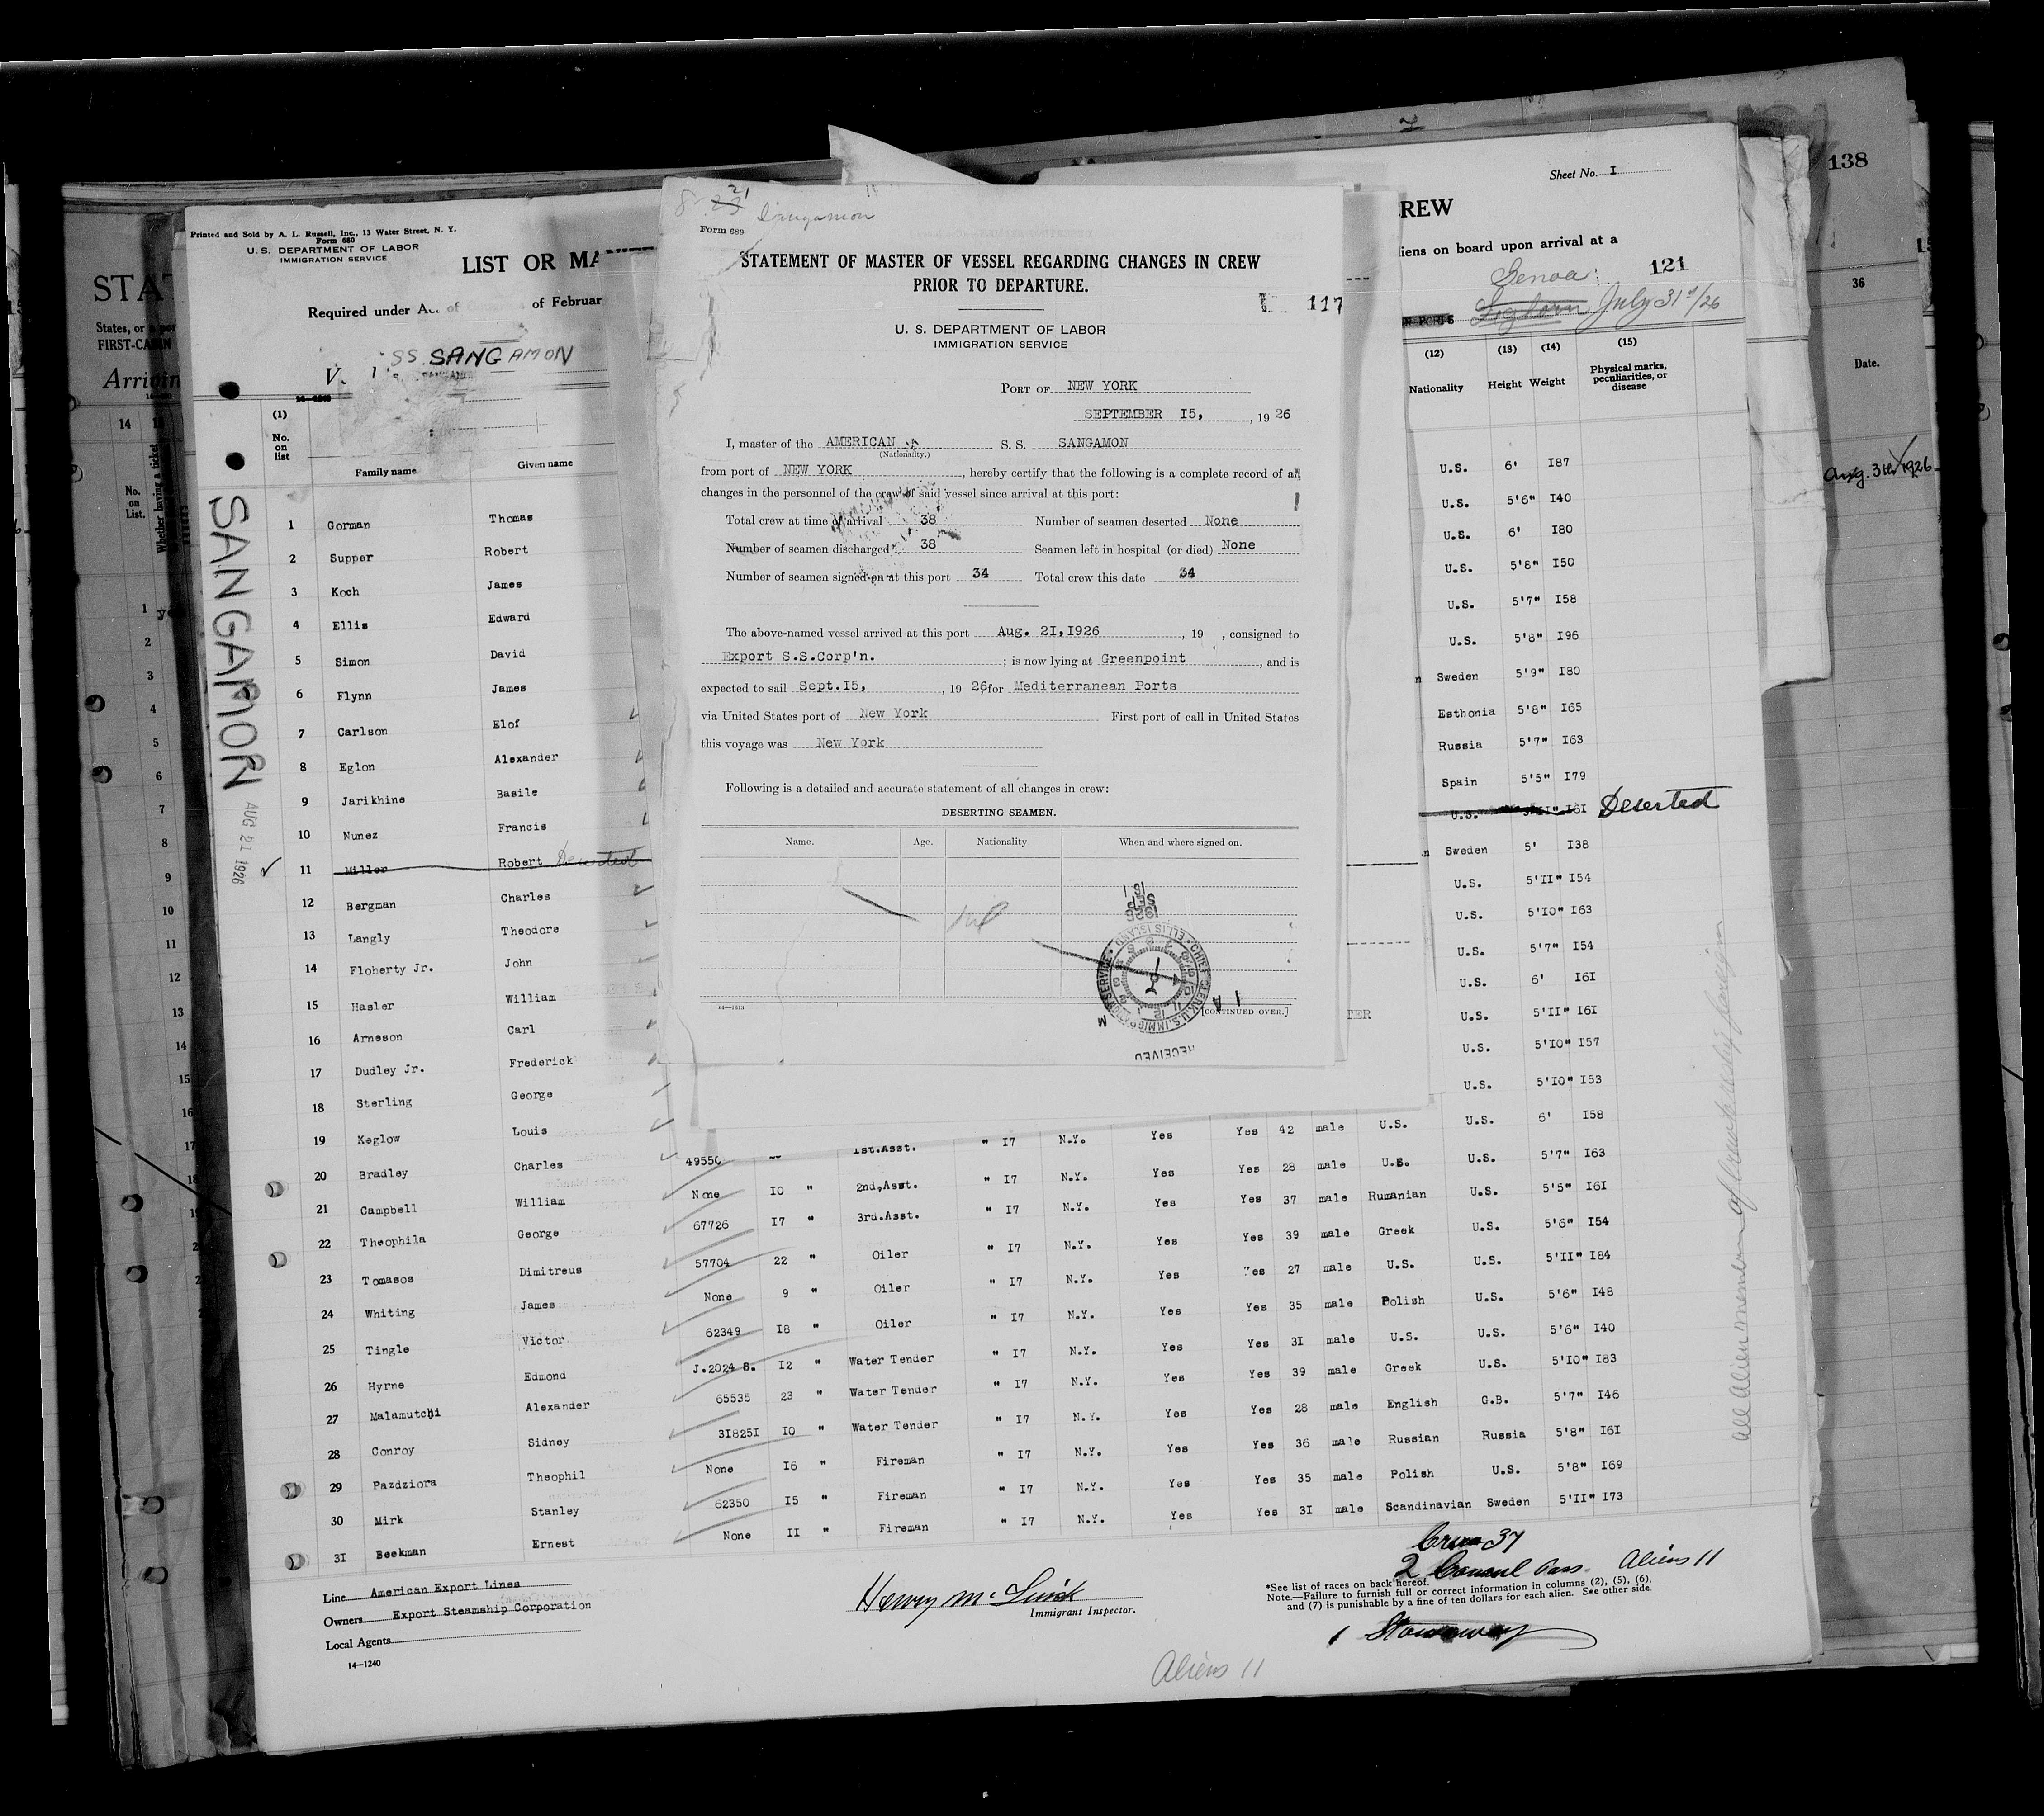 138
36
Date.
Aug. 31st/1926
STAT
States, or a por
FIRST-CABIN
Arrivin
14
No. on List.
Whether having a ticket
Printed and Sold by A. L. Russell, Inc., 13 Water Street, N. Y.
Form 680
U. S. DEPARTMENT OF LABOR
IMMIGRATION SERVICE
LIST OR MA
Required under Ac of of Februar
SS SANGAMON
SANGAMON
AUG 21 1926
(1)
No. on list
Family name Given name
1 Gorman Thomas
2 Supper Robert
3 Koch James
4 Ellis Edward
5 Simon David
6 Flynn James
7 Carlson Elof
8 Eglon Alexander
9 Jarikhine Basile
10 Nunez Francis
11 Miller Robert Deserted
12 Bergman Charles
13 Langly Theodore
14 Floherty Jr. John
15 Hasler William
16 Arneson Carl
17 Dudley Jr. Frederick
18 Sterling George
19 Keglow Louis
20 Bradley Charles
21 Campbell William
22 Theophila George
23 Tomasos Dimitreus
24 Whiting James
25 Tingle Victor
26 Hyrne Edmond
27 Malamutchi Alexander
28 Conroy Sidney
29 Pazdziora Theophil
30 Mirk Stanley
31 Beekman Ernest
8 21 Sangamon
Form 689
STATEMENT OF MASTER OF VESSEL REGARDING CHANGES IN CREW
PRIOR TO DEPARTURE.
117
U. S. DEPARTMENT OF LABOR
IMMIGRATION SERVICE
PORT OF NEW YORK
SEPTEMBER I5, , 19 26
I, master of the AMERICAN S. S. SANGAMON
(Nationality.)
from port of NEW YORK , hereby certify that the following is a complete record of all
changes in the personnel of the crew of said vessel since arrival at this port:
Total crew at time of arrival 38 Number of seamen deserted None
Number of seamen discharged 38 Seamen left in hospital (or died) None
Number of seamen signed on at this port 34 Total crew this date 34
The above-named vessel arrived at this port Aug. 2I,I926 , 19 , consigned to
Export S.S.Corp'n. ; is now lying at Greenpoint , and is
expected to sail Sept.I5, , 19 26, for Mediterranean Ports
via United States port of New York First port of call in United States
this voyage was New York
Following is a detailed and accurate statement of all changes in crew:
DESERTING SEAMEN.
Name. Age. Nationality When and where signed on.
nil
1926 SEP 18
CHIEF CLERK, U.S. IMMIGRATION SERVICE ELLIS ISLAND
RECEIVED
14—1613
[CONTINUED OVER.]
Sheet No. I
CREW
liens on board upon arrival at a
121
Genoa
Leghorn July 31st/26
(12) (13) (14) (15)
Nationality Height Weight Physical marks, peculiarities, or disease
U.S. 6' I87
U.S. 5'6" I40
U.S. 6' I80
U.S. 5'8" I50
U.S. 5'7" I58
U.S. 5'8" I96
Sweden 5'9" I80
Esthonia 5'8" I65
Russia 5'7" I63
Spain 5'5" I79
U.S. 5'II" I6I Deserted
Sweden 5' I38
U.S. 5'II" I54
U.S. 5'IO" I63
U.S. 5'7" I54
U.S. 6' I6I
U.S. 5'II" I6I
U.S. 5'IO" I57
U.S. 5'IO" I53
TER
49550 1st.Asst. " I7 N.Y. Yes Yes 42 male U.S. U.S. 6' I58
None IO " 2nd.Asst. " I7 N.Y. Yes Yes 28 male U.S. U.S. 5'7" I63
67726 I7 " 3rd.Asst. " I7 N.Y. Yes Yes 37 male Rumanian U.S. 5'5" I6I
57704 22 " Oiler " I7 N.Y. Yes Yes 39 male Greek U.S. 5'6" I54
None 9 " Oiler " I7 N.Y. Yes Yes 27 male U.S. U.S. 5'II" I84
62349 I8 " Oiler " I7 N.Y. Yes Yes 35 male Polish U.S. 5'6" I48
J.2024 S. I2 " Water Tender " I7 N.Y. Yes Yes 3I male U.S. U.S. 5'6" I40
65535 23 " Water Tender " I7 N.Y. Yes Yes 39 male Greek U.S. 5'IO" I83
3I825I IO " Water Tender " I7 N.Y. Yes Yes 28 male English G.B. 5'7" I46
None I6 " Fireman " I7 N.Y. Yes Yes 36 male Russian Russia 5'8" I6I
62350 I5 " Fireman " I7 N.Y. Yes Yes 35 male Polish U.S. 5'8" I69
None II " Fireman " I7 N.Y. Yes Yes 3I male Scandinavian Sweden 5'II" I73
All alien members of crew
Line American Export Lines
Owners Export Steamship Corporation
Local Agents
14—1240
Immigrant Inspector.
Crew 37
2 Consul Pass. Aliens 11
*See list of races on back hereof.
Note.—Failure to furnish full or correct information in columns (2), (5), (6),
and (7) is punishable by a fine of ten dollars for each alien. See other side.
1 Stowaway
Aliens 11